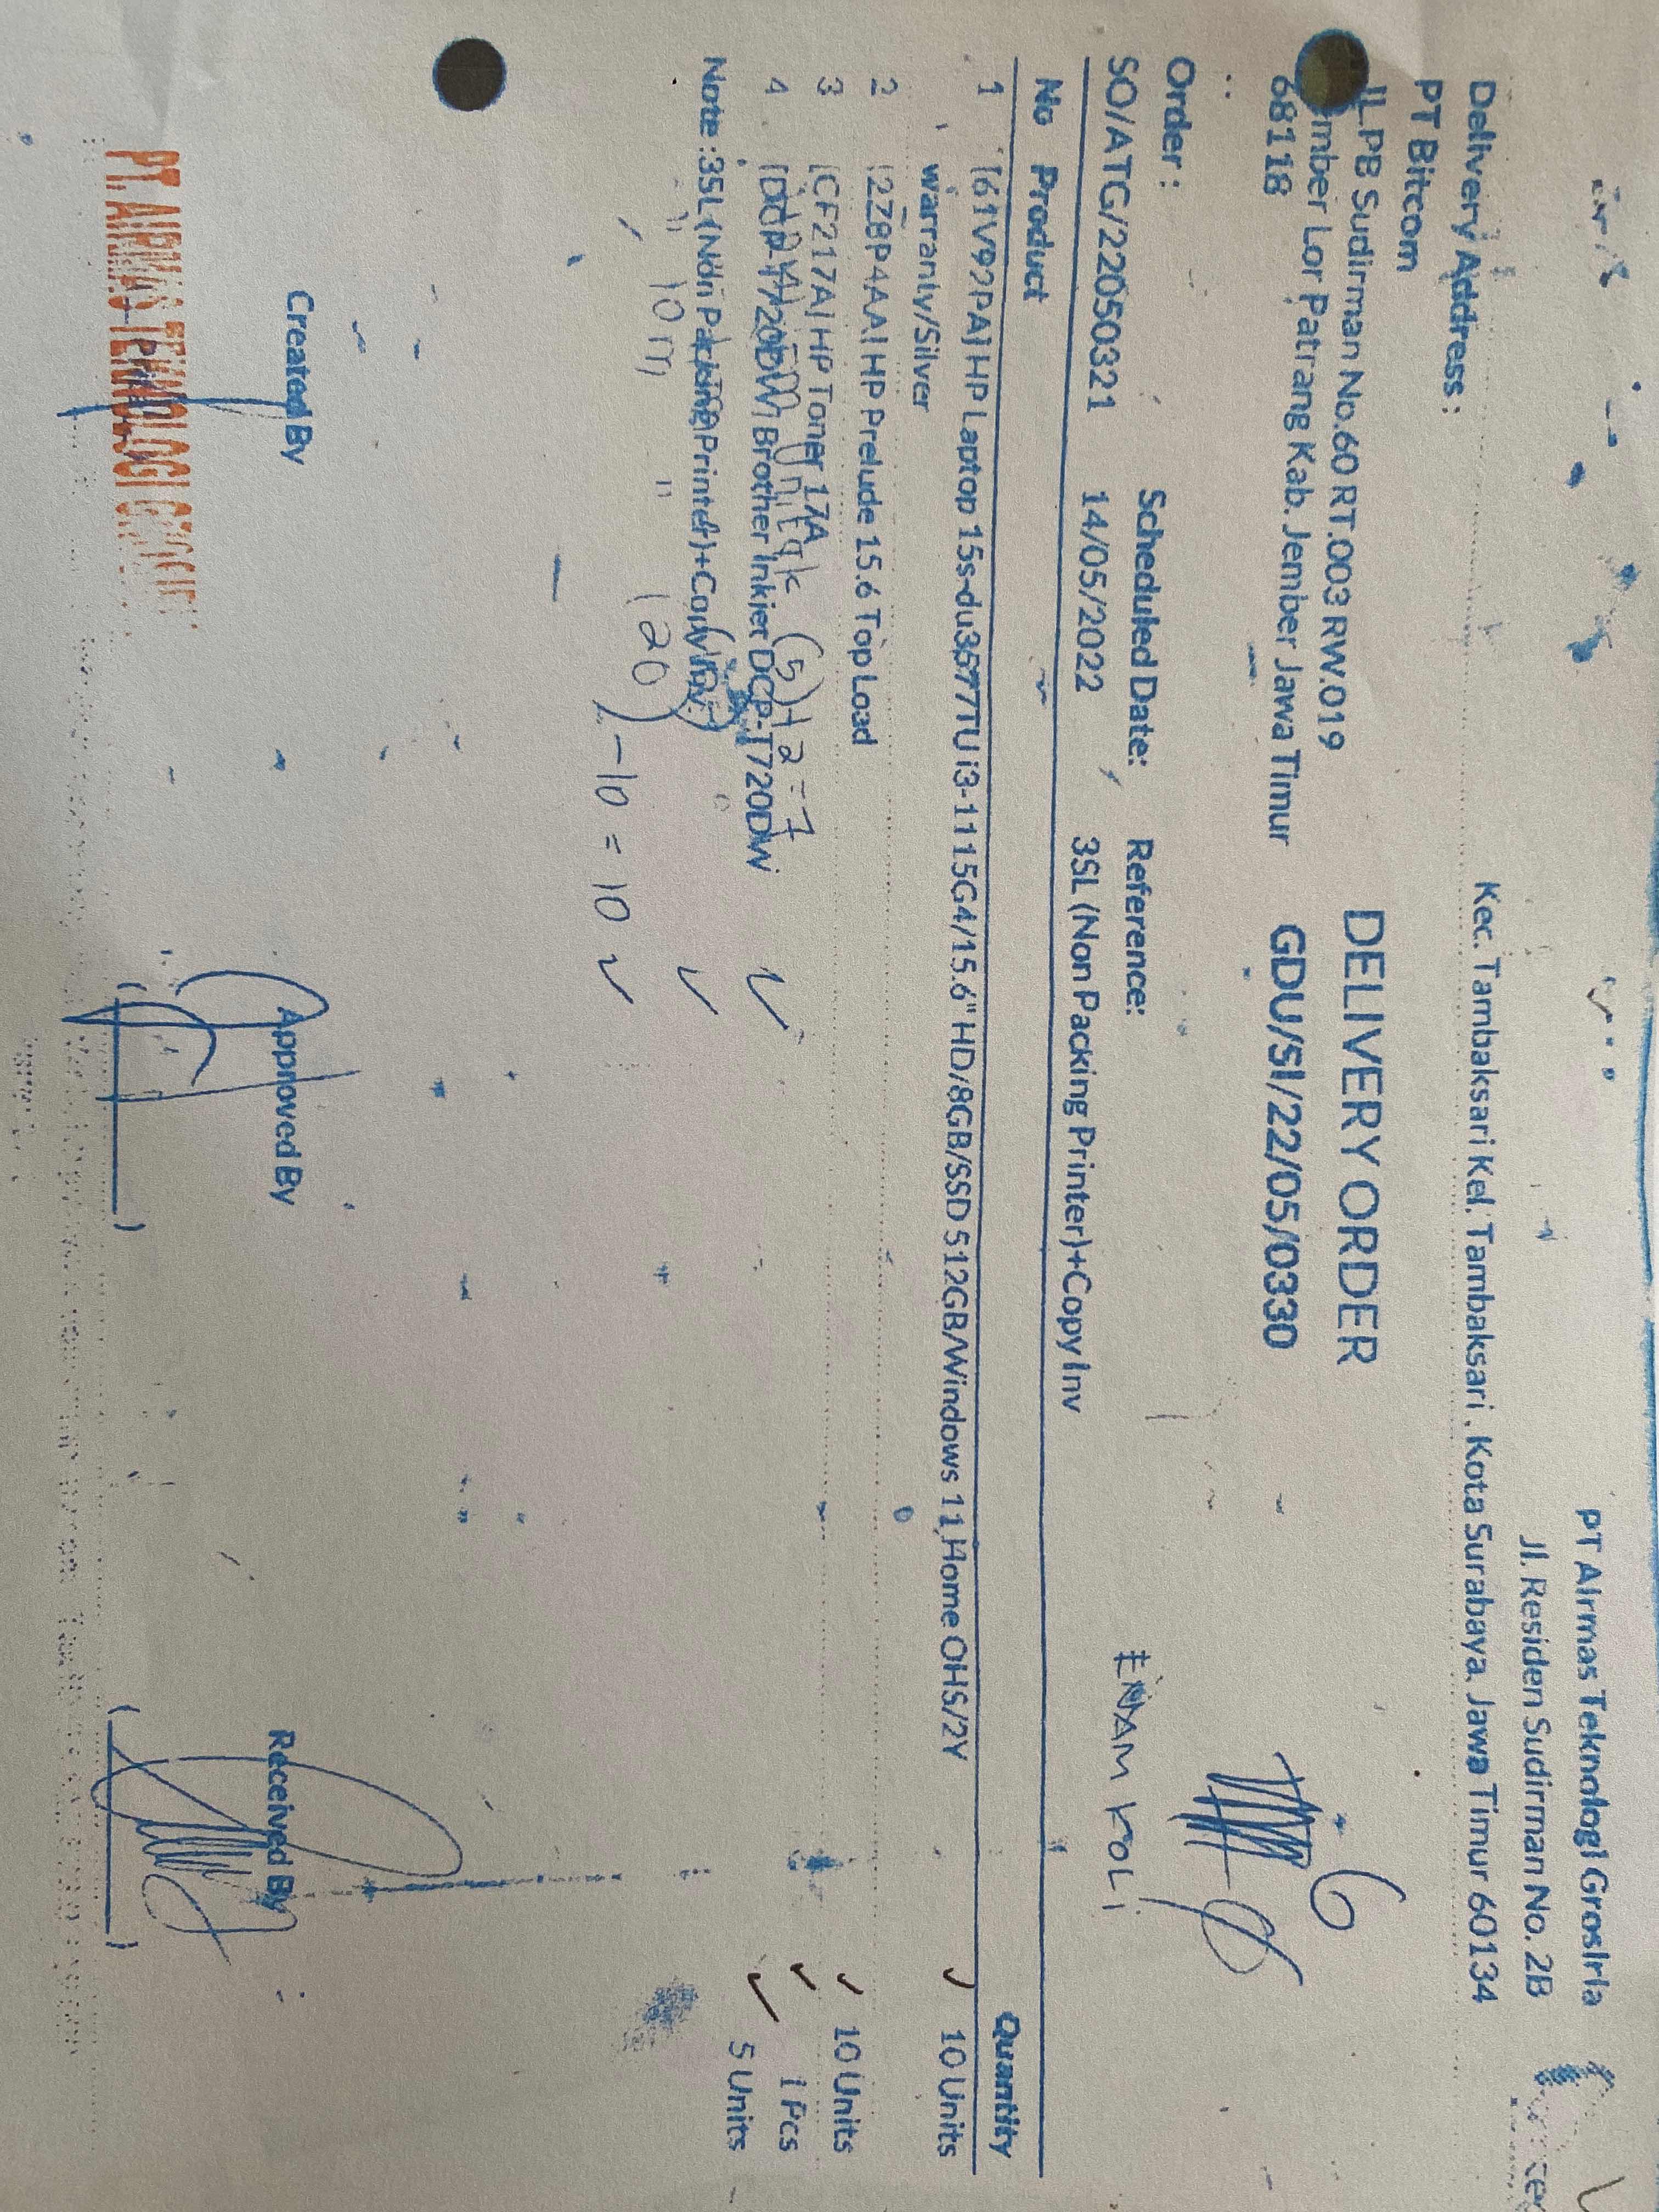 PT Airmas Teknologi Grosiria
Jl. Residen Sudirman No. 2B
Kec. Tambaksari Kel. Tambaksari , Kota Surabaya, Jawa Timur 60134
Delivery Address :
PT Bitcom
JL PB Sudirman No.60 RT.003 RW.019
mber Lor Patrang Kab. Jember Jawa Timur
68118
DELIVERY ORDER
GDU/SI/22/05/0330
6
Order :
Scheduled Date:
Reference:
SO/ATG/22050321
14/05/2022
3SL (Non Packing Printer)+Copy Inv
ENAM KOLI
No Product Quantity
1 [61V92PA] HP Laptop 15s-du3577TU i3-1115G4/15.6" HD/8GB/SSD 512GB/Windows 11 Home OHS/2Y 10 Units
warranty/Silver
2 [2Z8P4AA] HP Prelude 15.6 Top Load 10 Units
3 [CF217A] HP Toner 17A 1 Pcs
4 [DCP-T720DW] Brother Inkjet DCP-T720DW 5 Units
Note :3SL (Non Packing Printer)+Copy Inv
(5)+2=7
10 m " (20)-10=10
Created By
Approved By
Received By
PT. AIRMAS TEKNOLOGI